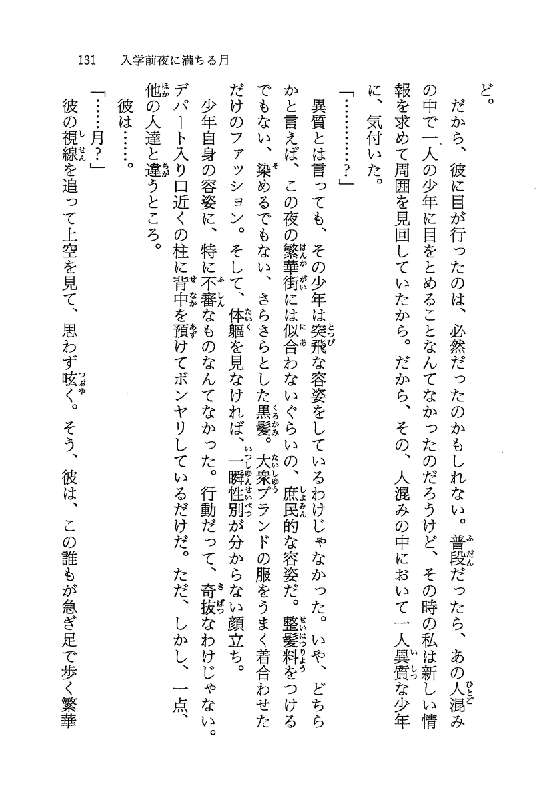 131　入学前夜に満ちる月
ど。
　だから、彼に目が行ったのは、必然だったのかもしれない。普段だったら、あの人混み
の中で一人の少年に目をとめることなんてなかったのだろうけど、その時の私は新しい情
報を求めて周囲を見回していたから。だから、その、人混みの中において一人異質な少年
に、気付いた。
「…………？」
　異質とは言っても、その少年は突飛な容姿をしているわけじゃなかった。いや、どちら
かと言えば、この夜の繁華街には似合わないぐらいの、庶民的な容姿だ。整髪料をつける
でもない、染めるでもない、さらさらとした黒髪。大衆ブランドの服をうまく着合わせた
だけのファッション。そして、体軀を見なければ、一瞬性別が分からない顔立ち。
　少年自身の容姿に、特に不審なものなんてなかった。行動だって、奇抜なわけじゃない。
デパート入り口近くの柱に背中を預けてボンヤリしているだけだ。ただ、しかし、一点、
他の人達と違うところ。
　彼は……。
「……月？」
　彼の視線を追って上空を見て、思わず呟く。そう、彼は、この誰もが急ぎ足で歩く繁華